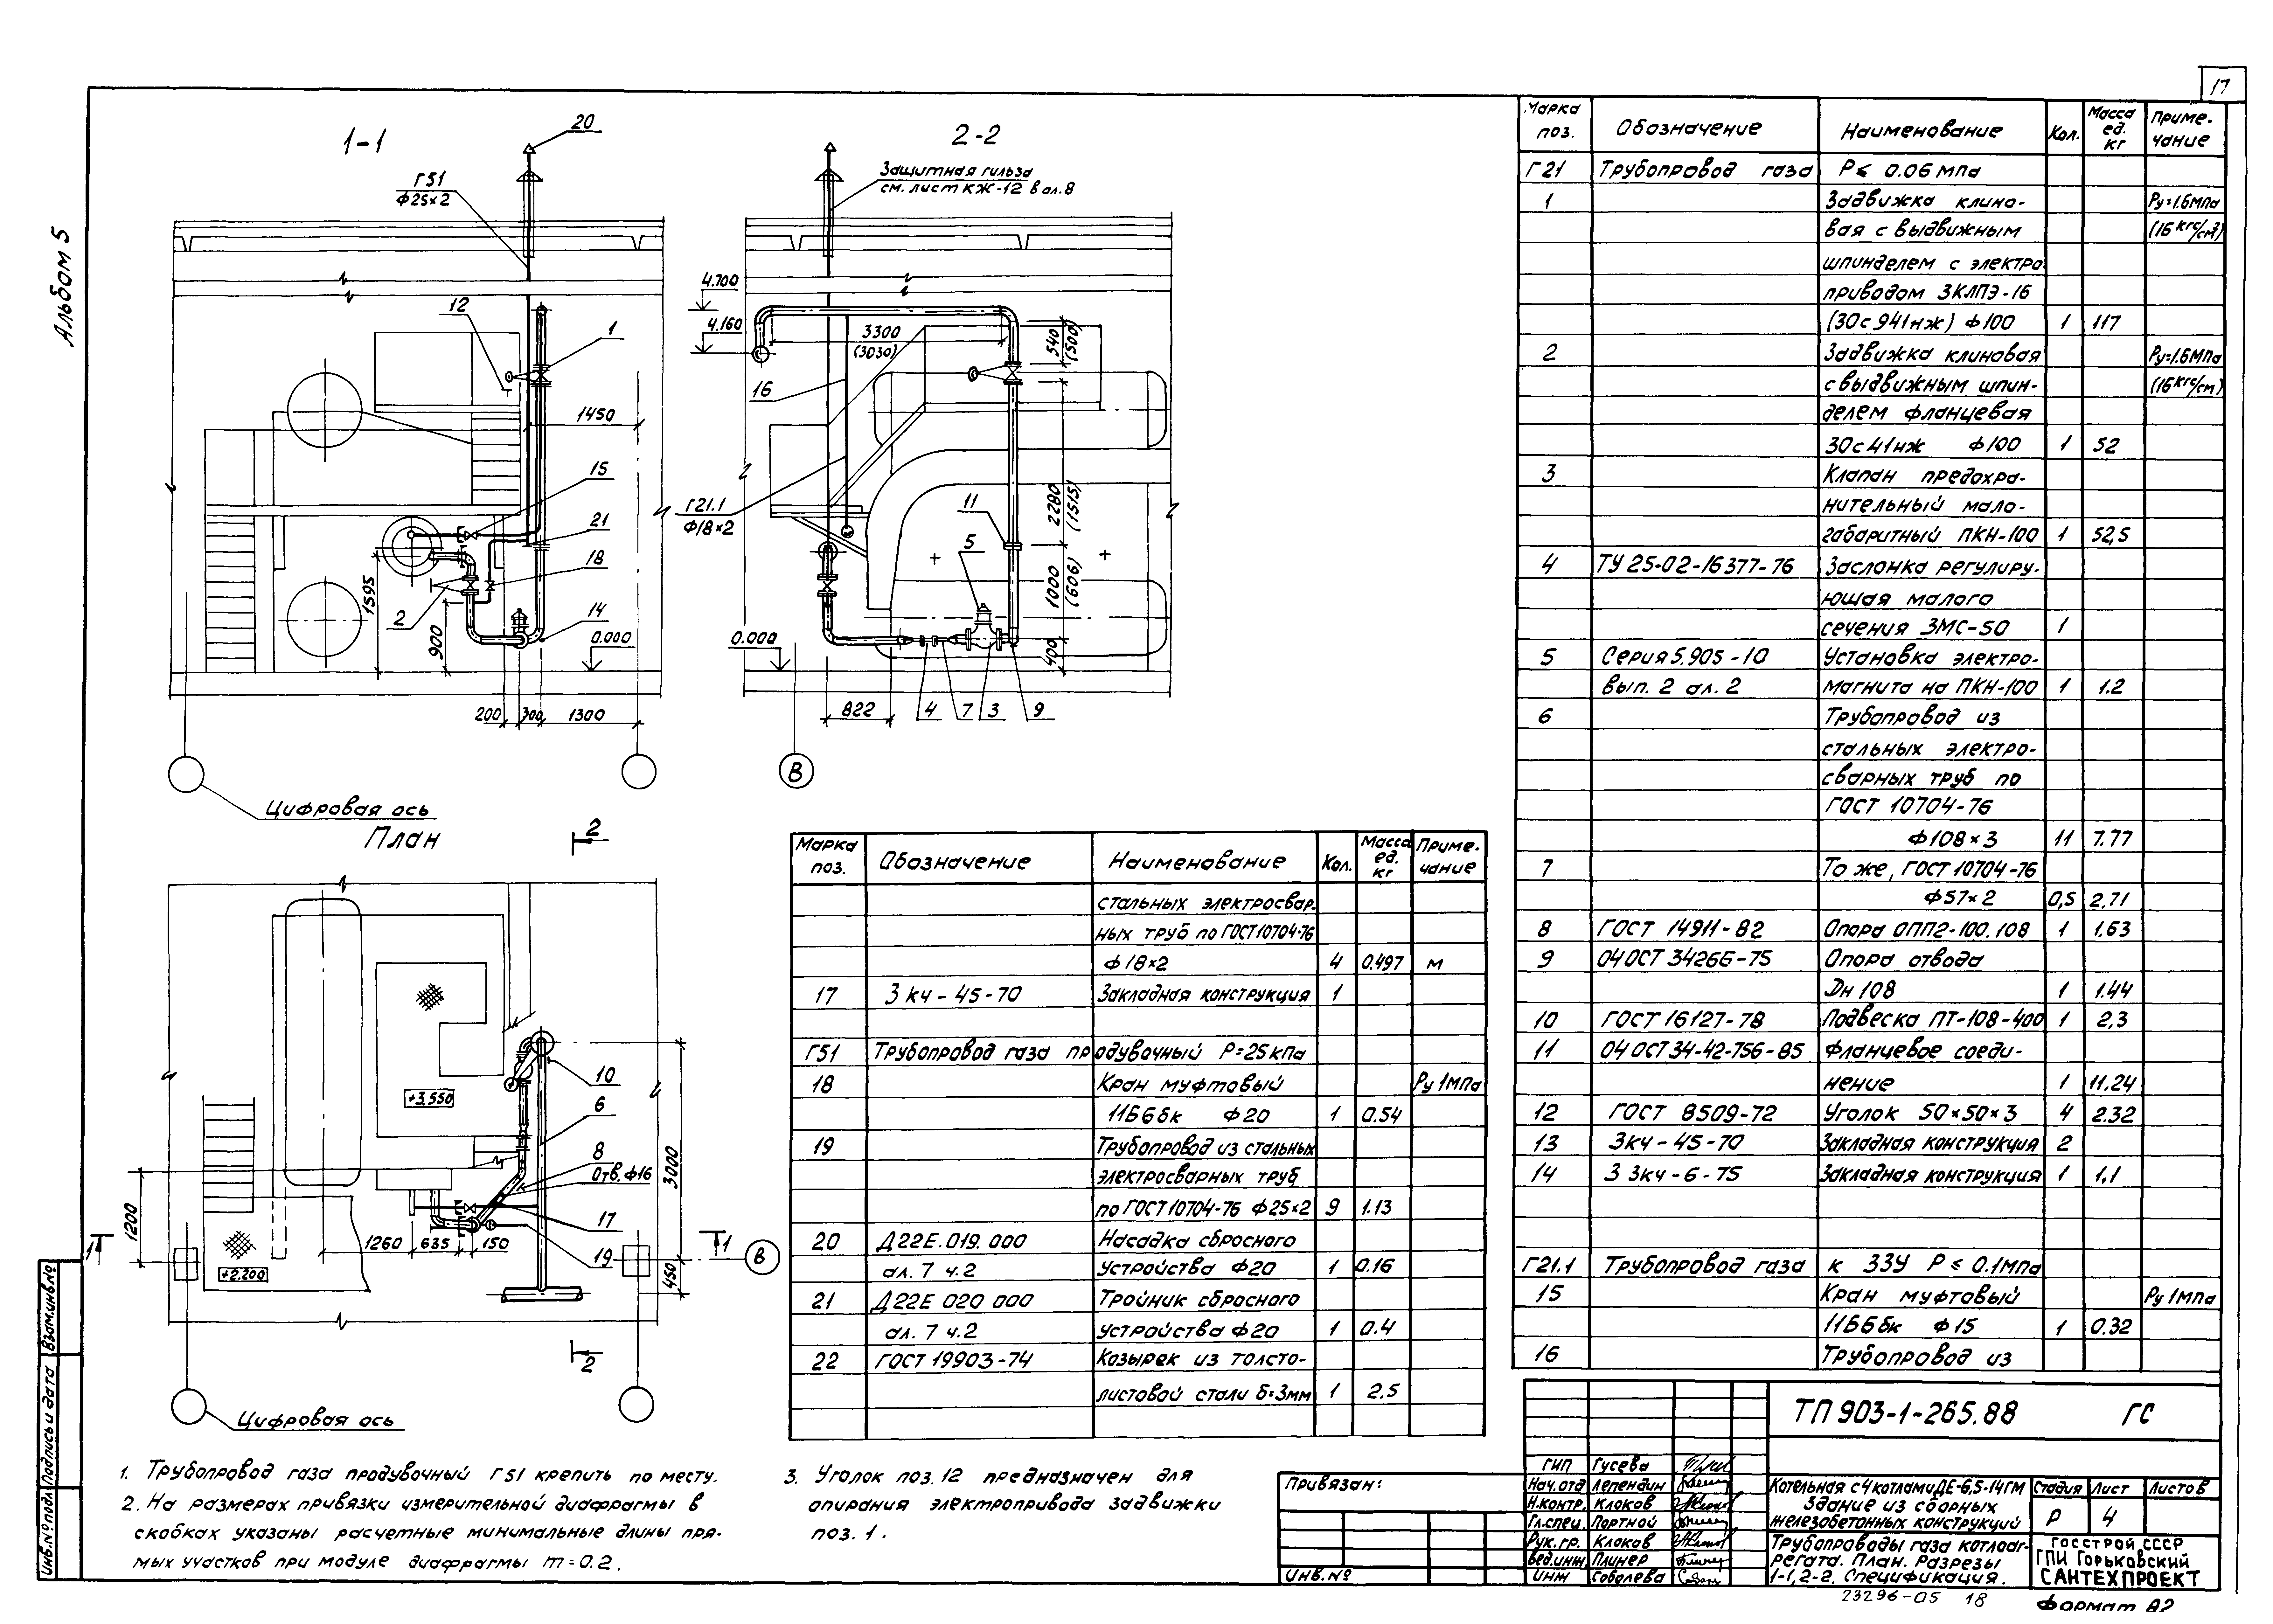 17
Альбом 5
1-1
20
Г51
Ф25×2
12
1
1450
15
21
18
2
14
1595
900
0.000
200
300
1300
Цифровая ось
2-2
Защитная гильза
см. лист КЖ-12 в ал.8
4.700
4.160
3300
(3030)
540
(500)
16
Г21.1
Ф18×2
11
5
2280
(1515)
1000
(606)
400
0.000
822
4
7
3
9
В
План
2
+3.550
10
6
8
Отв. Ф16
17
19
3000
450
1200
1260
635
150
+2.200
1
1
В
2
Цифровая ось
Марка поз. Обозначение Наименование Кол. Масса ед. кг Приме-чание
Г21 Трубопровод газа Р≤ 0.06 мпа
1 Задвижка клино- Ру=1.6мпа
вая с выдвижным (16 кгс/см²)
шпинделем с электро
приводом ЗКЛПЭ-16
(30с941нж) Ф100 1 117
2 Задвижка клиновая Ру=1.6мпа
с выдвижным шпин- (16 кгс/см)
делем фланцевая
30с41нж Ф100 1 52
3 Клапан предохра-
нительный мало-
габаритный ПКН-100 1 52,5
4 ТУ 25-02-16377-76 Заслонка регулиру-
ющая малого
сечения ЗМС-50 1
5 Серия 5.905-10 Установка электро-
вып. 2 ал. 2 магнита на ПКН-100 1 1.2
6 Трубопровод из
стальных электро-
сварных труб по
ГОСТ 10704-76
Ф108×3 11 7.77
7 То же, ГОСТ 10704-76
Ф57×2 0,5 2,71
8 ГОСТ 14911-82 Опора ОПП2-100.108 1 1.63
9 04 ОСТ 34266-75 Опора отвода
Дн 108 1 1.44
10 ГОСТ 16127-78 Подвеска ПТ-108-400 1 2,3
11 04 ОСТ 34-42-756-85 Фланцевое соеди-
нение 1 11.24
12 ГОСТ 8509-72 Уголок 50×50×3 4 2.32
13 Зкч-45-70 Закладная конструкция 2
14 З Зкч-6-75 Закладная конструкция 1 1,1
Г21.1 Трубопровод газа к ЗЗУ Р≤ 0.1мпа
15 Кран муфтовый Ру 1мпа
11Б6бк Ф15 1 0.32
16 Трубопровод из
Марка поз. Обозначение Наименование Кол. Масса ед. кг Приме-чание
стальных электросвар-
ных труб по ГОСТ10704-76
Ф18×2 4 0.497 м
17 З кч-45-70 Закладная конструкция 1
Г51 Трубопровод газа продувочный Р=25кпа
18 Кран муфтовый Ру 1мпа
11Б6бк Ф20 1 0.54
19 Трубопровод из стальных
электросварных труб
по ГОСТ10704-76 Ф25×2 9 1.13
20 Д22Е.019.000 Насадка сбросного
ал. 7 ч.2 устройства Ф20 1 0.16
21 Д22Е 020 000 Тройник сбросного
ал. 7 ч.2 устройства Ф20 1 0.4
22 ГОСТ 19903-74 Козырек из толсто-
листовой стали δ=3мм 1 2.5
1. Трубопровод газа продувочный Г51 крепить по месту.
2. На размерах привязки измерительной диафрагмы в
скобках указаны расчетные минимальные длины пря-
мых участков при модуле диафрагмы m=0.2.
3. Уголок поз.12 предназначен для
опирания электропривода задвижки
поз. 1.
Привязан:
Инв.№
ГИП Гусева
Нач.отд Лепендин
Н.контр. Клоков
Гл.спец. Портной
Рук.гр. Клоков
Вед.инж. Плинер
Инж Соболева
ТП 903-1-265.88 ГС
Котельная с 4 котлами ДЕ-6,5-14ГМ
Здание из сборных
железобетонных конструкций
Стадия Лист Листов
Р 4
Трубопроводы газа котлоаг-
регата. План. Разрезы
1-1, 2-2. Спецификация.
Госстрой СССР
ГПИ Горьковский
САНТЕХПРОЕКТ
23296-05 18
Формат А2
Взам.инв.№
Подпись и дата
Инв.№ подл